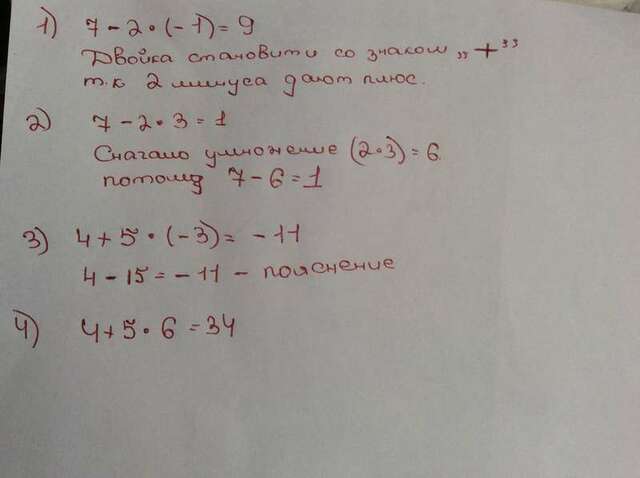 1) 7 - 2 · (-1) = 9
Двойка становити со знаком „+”
т.к 2 минуса дают плюс.
2) 7 - 2 · 3 = 1
Сначало умножение (2·3) = 6
потому 7 - 6 = 1
3) 4 + 5 · (-3) = -11
4 - 15 = -11 - пояснение
4) 4 + 5 · 6 = 34